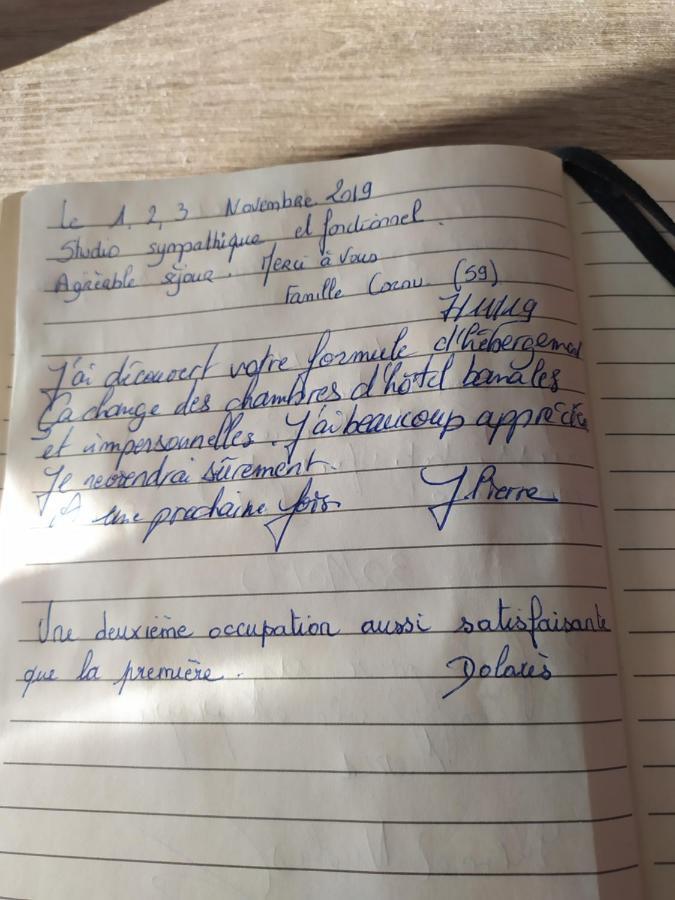 Le 1, 2, 3 Novembre 2019
Studio sympathique et fonctionnel.
Agréable séjour. Merci à Vous
Famille (59)
J'ai découvert votre formule d'hébergement
Ça change des chambres d'hôtel banales
et impersonnelles. J'ai beaucoup apprécié
Je reviendrai sûrement.
A une prochaine fois J. Pierre
Une deuxième occupation aussi satisfaisante
que la première. Dolorès